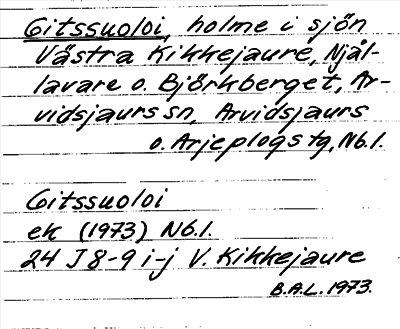 Gitssuoloi, holme i sjön
Västra Kikkejaure, Njål-
lavare o. Björkberget, Ar-
vidsjaurs sn, Arvidsjaurs
o. Arjeplogs tg, Nb.l.
Gitssuoloi
ek (1973) Nb.l.
24 J 8-9 i-j V. Kikkejaure
B.A.L. 1973.